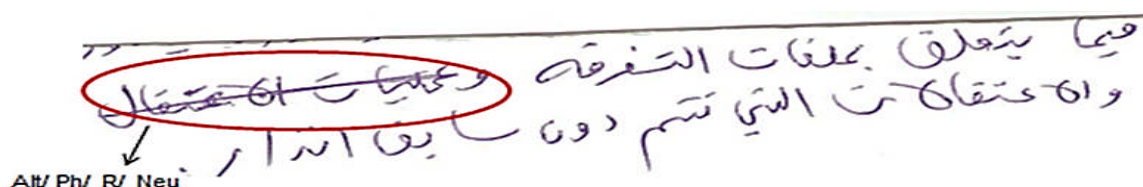 فيما يتعلق بملفات التفرقه وعمليات الاعتقال
والاعتقالات التي تتم دون سابق انذار .
Alt/ Ph/ R/ Neu